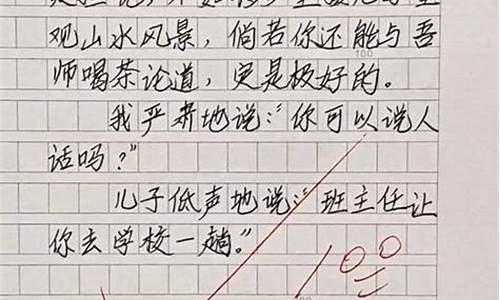 观山水风景，倘若你还能与吾
师喝茶论道，更是极好的。
100
我严肃地说：“你可以说人
话吗？”
儿子低声地说：“班主任让
你去学校一趟。”
100